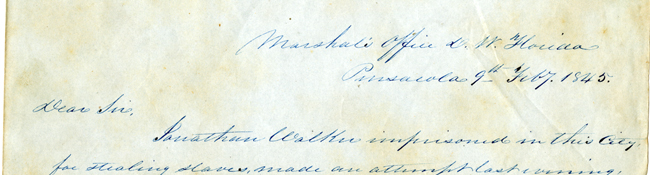 Marshal's Office D. W. Florida
Pensacola 9th Feby. 1845.
Dear Sir,
Jonathan Walker imprisoned in this City,
for stealing slaves, made an attempt last evening,